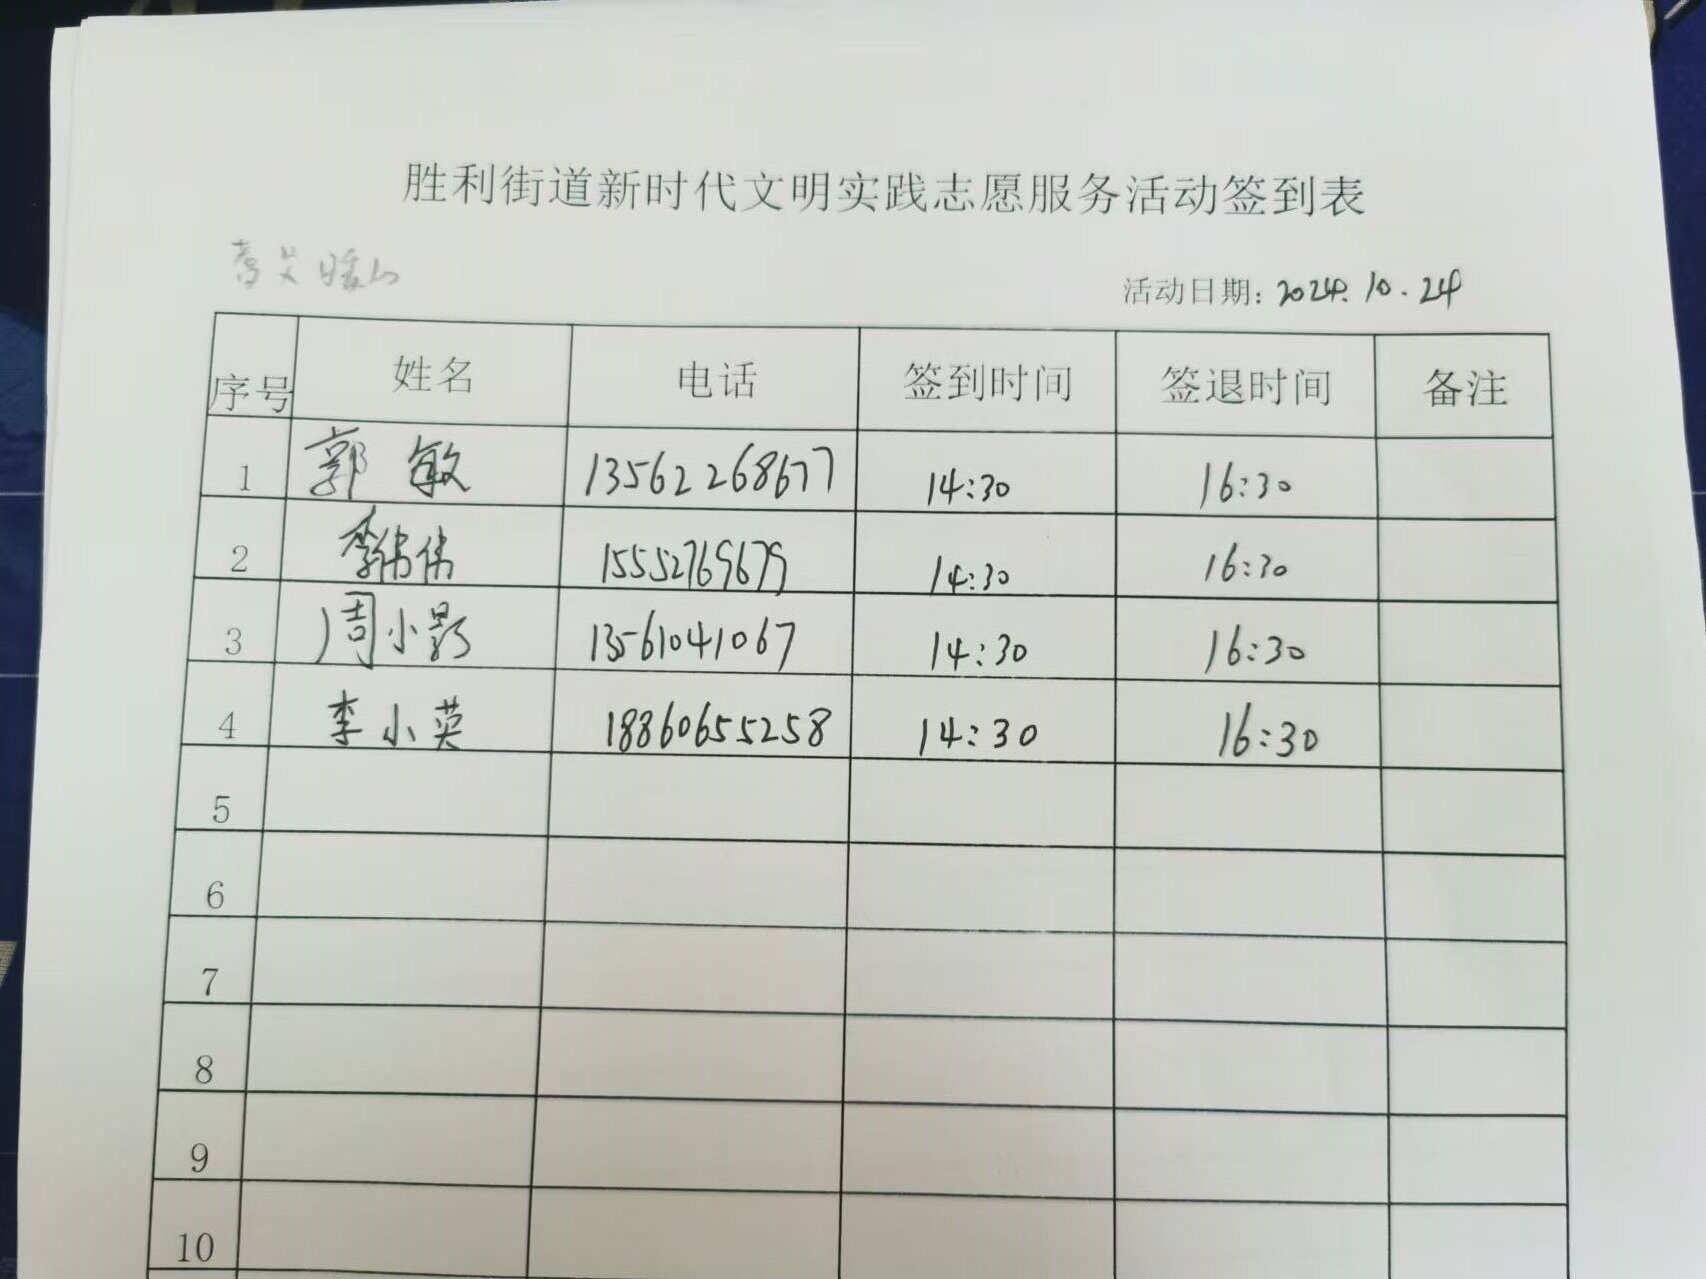 胜利街道新时代文明实践志愿服务活动签到表
活动日期: 2024.10.24
序号 姓名 电话 签到时间 签退时间 备注
1 郭敏 13562268677 14:30 16:30
2 李伟伟 15552769679 14:30 16:30
3 周小影 13561041067 14:30 16:30
4 李小英 18860655258 14:30 16:30
5
6
7
8
9
10